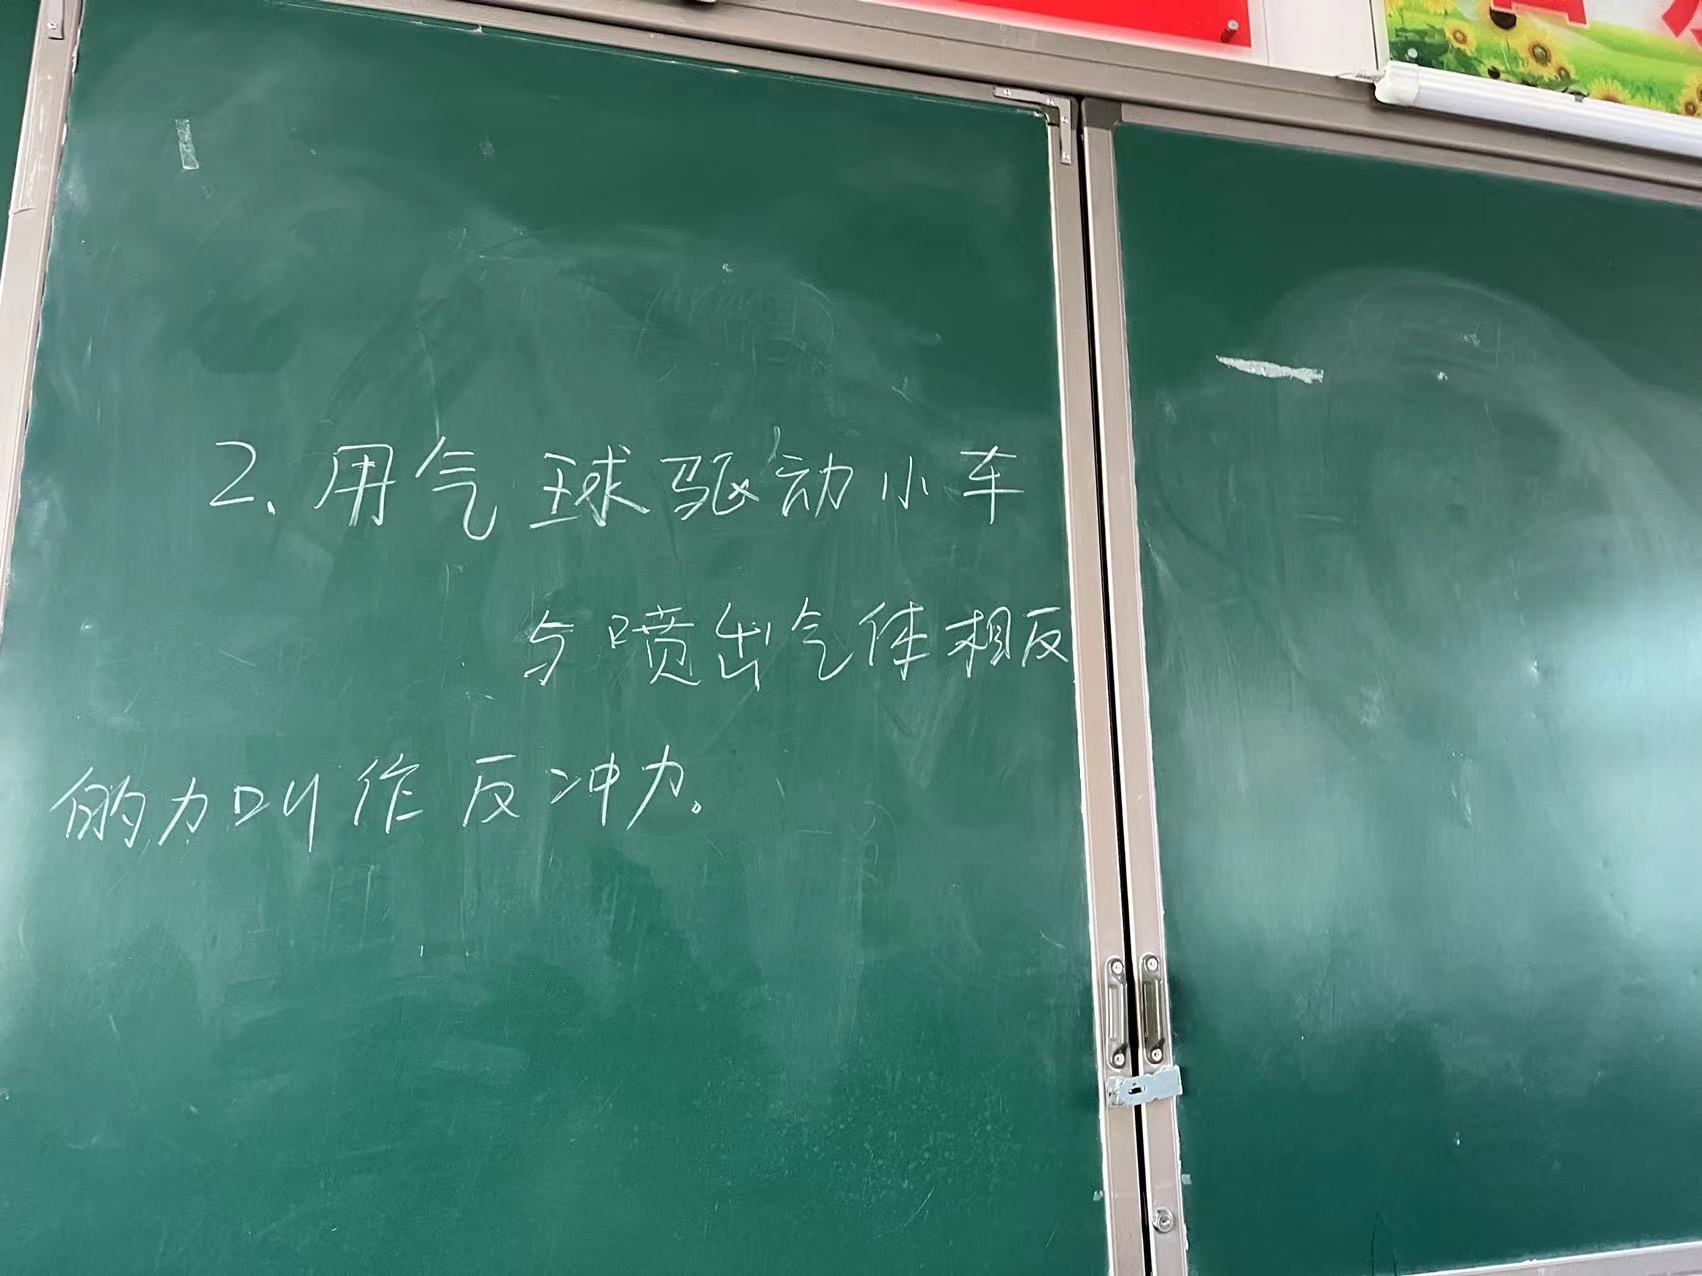 2、用气球驱动小车
与喷出气体相反
的力叫作反冲力。